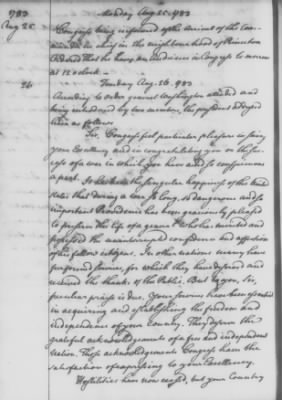 1783 Monday Aug 25. 1783
Aug 25. Congress being informed of the arrival of the Com-
mander in chief in the neighbourhood of Princeton
Ordered that he have an audience in Congress to morrow
at 12 o'clock.
26 Tuesday Aug. 26. 1783
According to order general Washington attended and
being introduced by two members, the president addressed
him as follows
Sir, Congress feel particular pleasure in seeing
your Excellency and in congratulating you on the suc-
cess of a war in which you have acted so conspicuous
a part. It has been the singular happiness of the united
states that during a war so long, so dangerous and so
important Providence has been graciously pleased
to preserve the life of a general who has merited and
possessed the uninterrupted confidence and affection
of his fellow citizens. In other nations many have
performed services, for which they have deserved and
received the thanks of the Public. But to you, Sir,
peculiar praise is due. Your services have been essential
in acquiring and establishing the freedom and
independence of your country. They deserve the
grateful acknowledgements of a free and independent
nation. Those acknowledgements Congress have the
satisfaction of expressing to your Excellency.
Hostilities have now ceased, but your Country